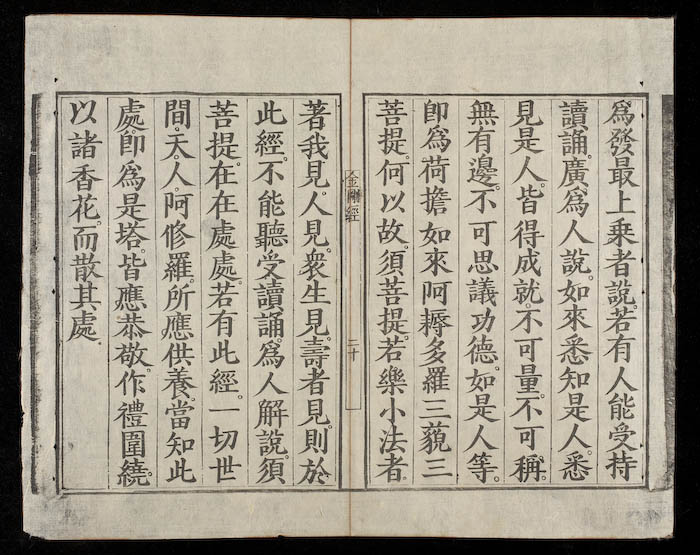 爲發最上乘者說。若有人能受持
讀誦。廣爲人說。如來悉知是人。悉
見是人。皆得成就。不可量。不可稱。
無有邊。不可思議功德。如是人等。
卽爲荷擔如來阿耨多羅三藐三
菩提。何以故。須菩提。若樂小法者。
金剛經
二十
著我見。人見。衆生見。壽者見。則於
此經。不能聽受讀誦。爲人解說。須
菩提。在在處處。若有此經。一切世
間。天。人。阿修羅。所應供養。當知此
處。卽爲是塔。皆應恭敬。作禮圍繞。
以諸香花。而散其處。